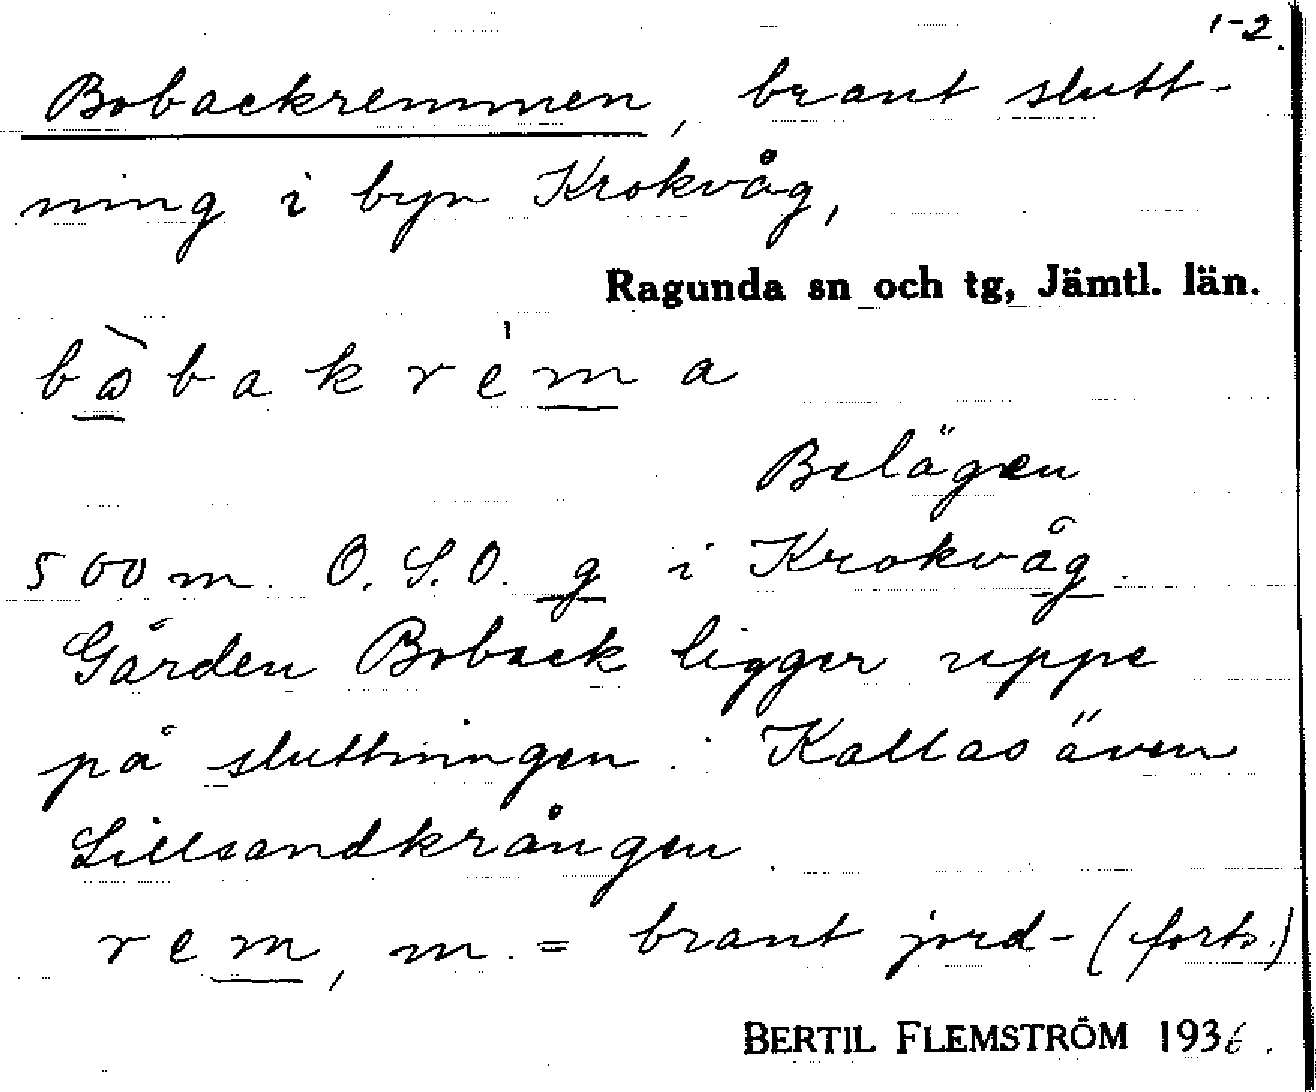 1-2.
Bobackremmen, brant slutt-
ning i byn Krokvåg,
Ragunda sn och tg, Jämtl. län.
bòbakrèma
Belägen
500 m. O.S.O. g i Krokvåg.
Gården Boback ligger uppe
på sluttningen. Kallas även
Lillsandkrången.
rem, m. = brant jord- (forts.)
BERTIL FLEMSTRÖM 1936.